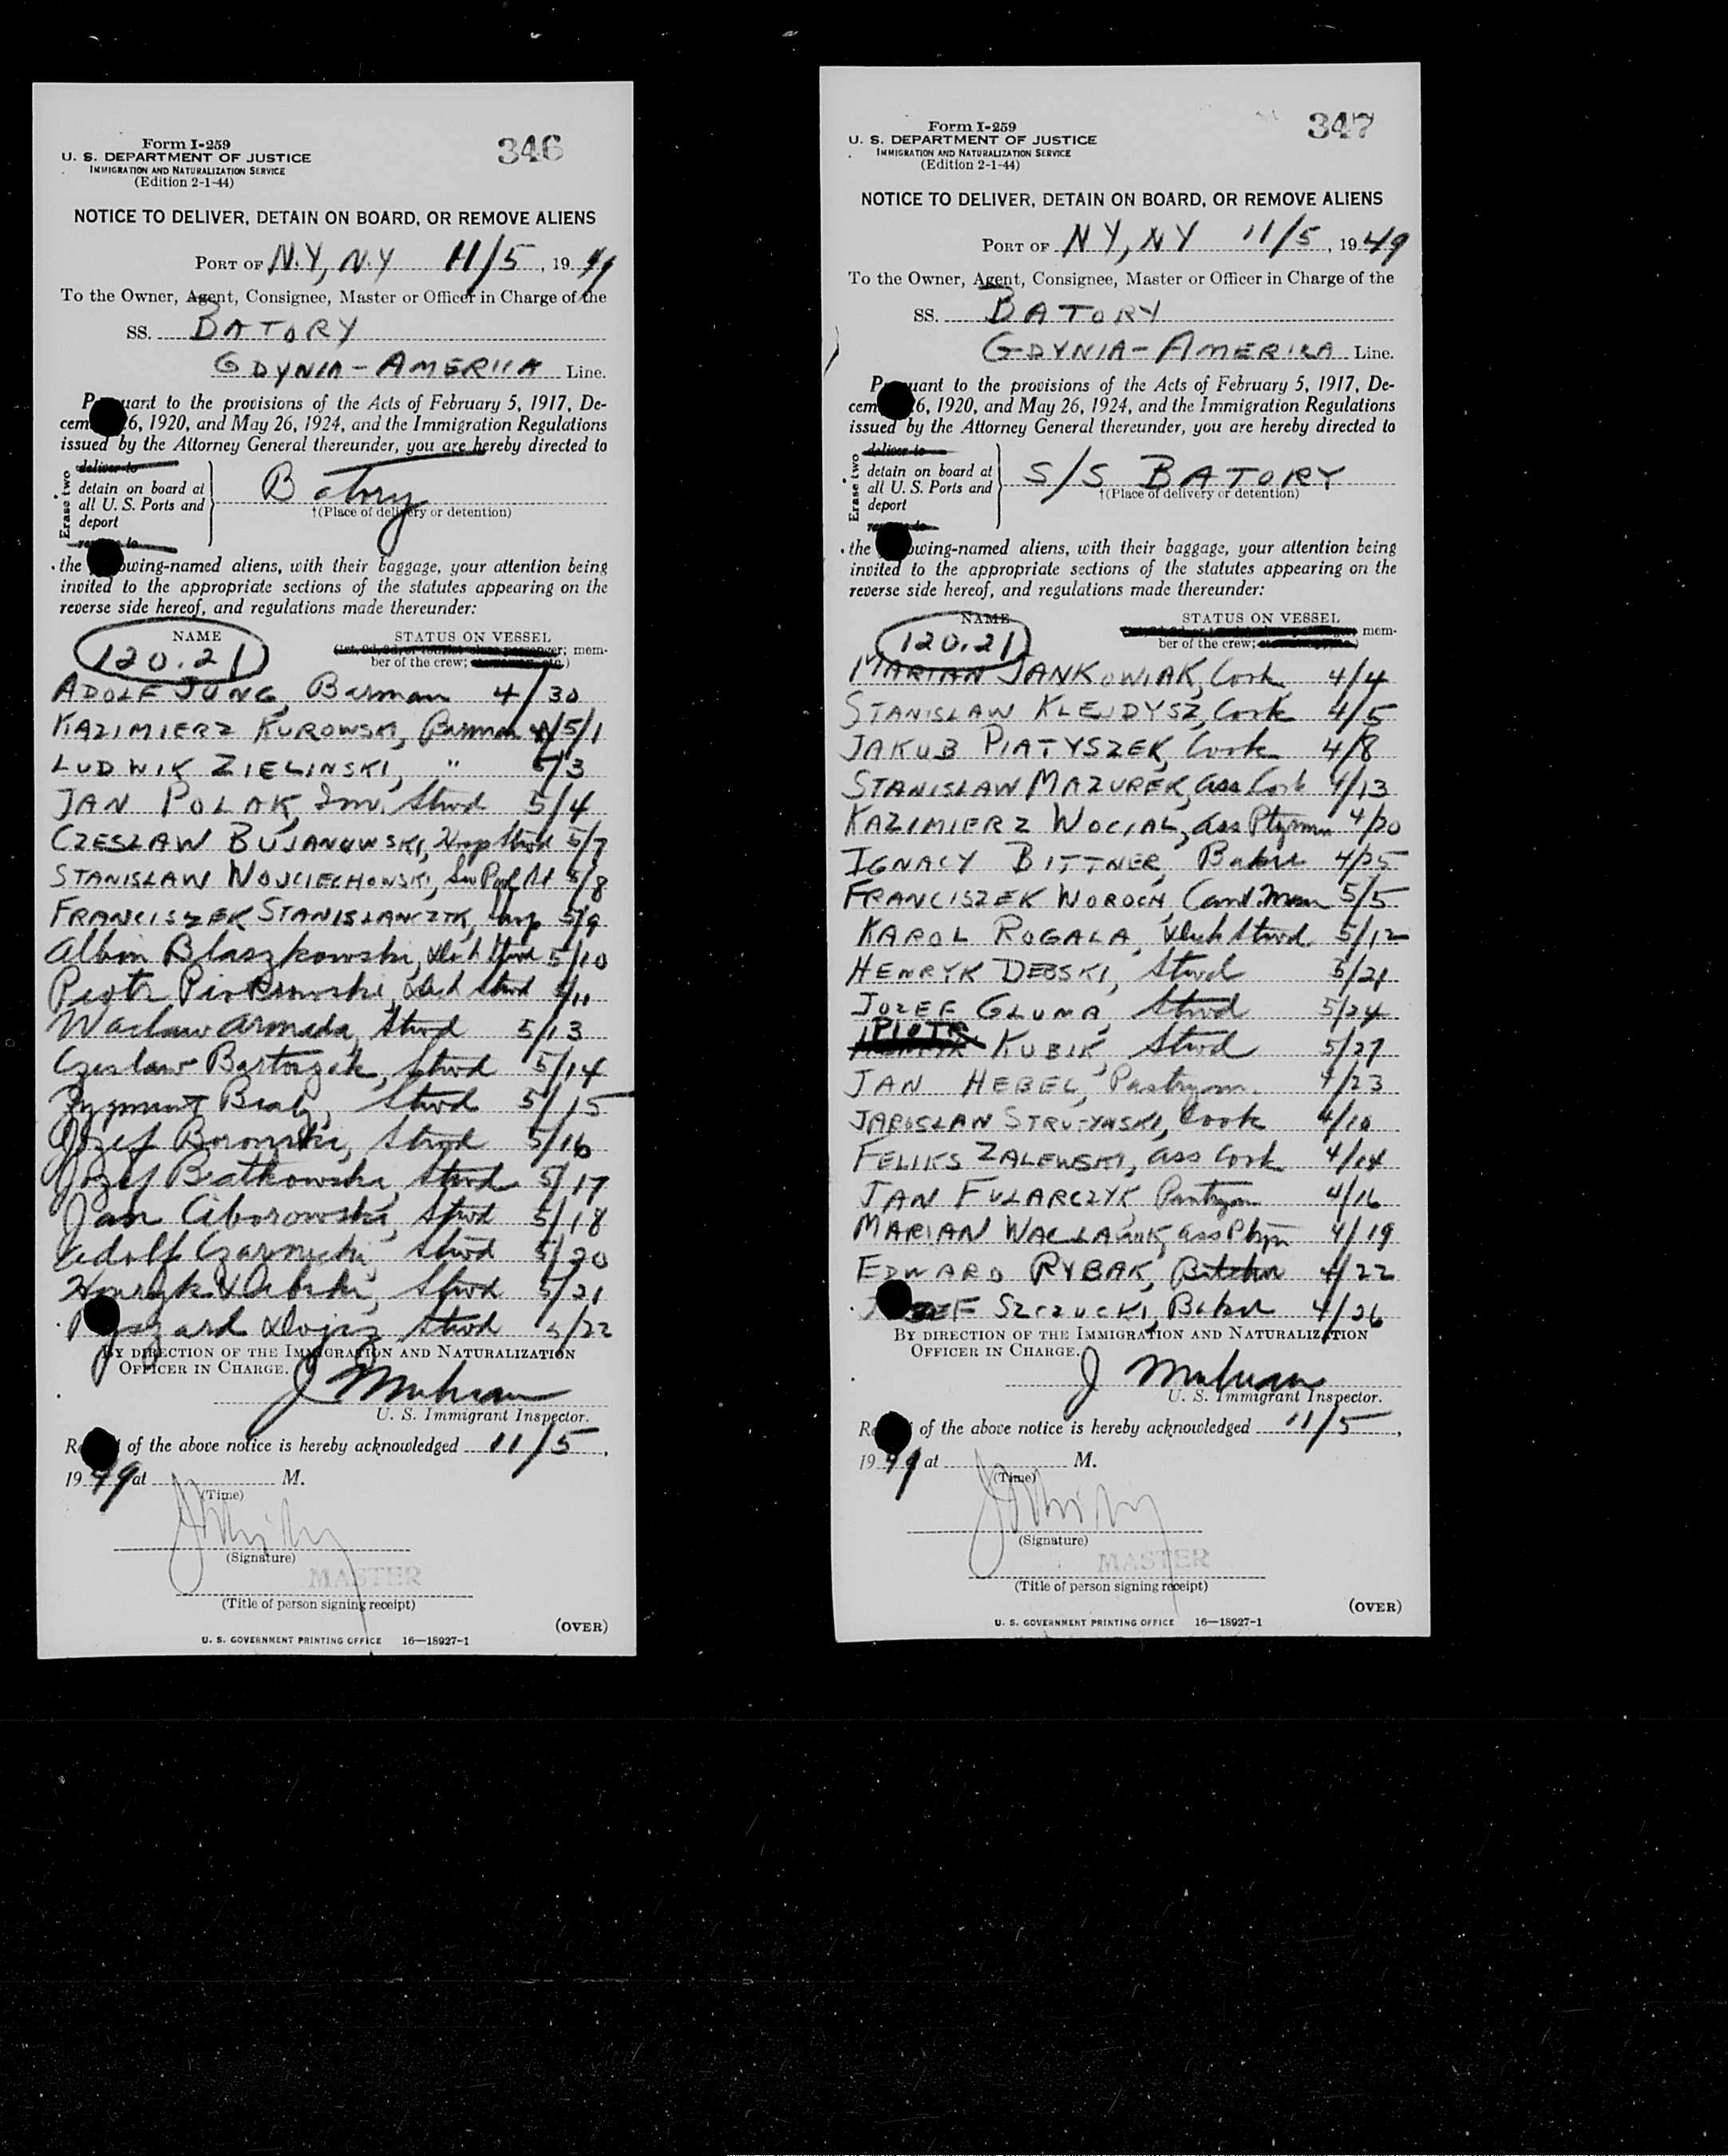 Form I-259
346
U. S. DEPARTMENT OF JUSTICE
IMMIGRATION AND NATURALIZATION SERVICE
(Edition 2-1-44)
NOTICE TO DELIVER, DETAIN ON BOARD, OR REMOVE ALIENS
PORT OF N.Y, N.Y 11/5, 1949
To the Owner, Agent, Consignee, Master or Officer in Charge of the
SS. BATORY
GDYNIA-AMERICA Line.
Pursuant to the provisions of the Acts of February 5, 1917, De-
cember 26, 1920, and May 26, 1924, and the Immigration Regulations
issued by the Attorney General thereunder, you are hereby directed to
Erase two
deliver to
detain on board at
all U. S. Ports and
deport
remove to
Batory
†(Place of delivery or detention)
the following-named aliens, with their baggage, your attention being
invited to the appropriate sections of the statutes appearing on the
reverse side hereof, and regulations made thereunder:
NAME STATUS ON VESSEL
120.21 mem-
ber of the crew;
ADOLF JUNG, Barman 4/30
KAZIMIERZ KUROWSKI, Barman 5/1
LUDWIK ZIELINSKI, " 5/3
JAN POLAK, Stwd 5/4
CZESLAW BUJANOWSKI, Stwd 5/7
STANISLAW WOJCIECHOWSKI, 5/8
FRANCISZEK 5/9
Albin Blaszkowski, Stwd 5/10
Piotr Stwd 5/11
Waclaw Armada, Stwd 5/13
Czeslaw Bartoszek, Stwd 5/14
Zygmunt Bialy, Stwd 5/15
Jozef Stwd 5/16
Jozef Biatkowski, Stwd 5/17
Jan Ciborowski, Stwd 5/18
Adolf Czarnecki, Stwd 5/20
Henryk Debski, Stwd 5/21
Ryszard Stwd 5/22
BY DIRECTION OF THE IMMIGRATION AND NATURALIZATION
OFFICER IN CHARGE.
U. S. Immigrant Inspector.
Receipt of the above notice is hereby acknowledged 11/5,
1949 at M.
(Time)
(Signature)
MASTER
(Title of person signing receipt)
(OVER)
U. S. GOVERNMENT PRINTING OFFICE 16—18927-1
Form I-259
347
U. S. DEPARTMENT OF JUSTICE
IMMIGRATION AND NATURALIZATION SERVICE
(Edition 2-1-44)
NOTICE TO DELIVER, DETAIN ON BOARD, OR REMOVE ALIENS
PORT OF NY, NY 11/5, 1949
To the Owner, Agent, Consignee, Master or Officer in Charge of the
SS. BATORY
GDYNIA-AMERICA Line.
Pursuant to the provisions of the Acts of February 5, 1917, De-
cember 26, 1920, and May 26, 1924, and the Immigration Regulations
issued by the Attorney General thereunder, you are hereby directed to
Erase two
deliver to
detain on board at
all U. S. Ports and
deport
remove to
S/S BATORY
†(Place of delivery or detention)
the following-named aliens, with their baggage, your attention being
invited to the appropriate sections of the statutes appearing on the
reverse side hereof, and regulations made thereunder:
NAME STATUS ON VESSEL
120.21 mem-
ber of the crew;
MARIAN JANKOWIAK, Cook 4/4
STANISLAW KLEJDYSZ, Cook 4/5
JAKUB PIATYSZEK, Cook 4/8
STANISLAW MAZUREK, ass Cook 4/13
KAZIMIERZ WOCIAL, ass Ptryman 4/20
IGNACY BITTNER, Baker 4/25
FRANCISZEK WOROCH, Man 5/5
KAROL ROGALA, Stwd 5/12
HENRYK DEBSKI, Stwd 5/21
JOZEF GLUMA, Stwd 5/24
PIOTR KUBIK, Stwd 5/27
JAN HEBEL, Pastrym. 4/23
JAROSLAW STRUTYNSKI, Cook 4/10
FELIKS ZALEWSKI, ass Cook 4/14
JAN FULARCZYK 4/16
MARIAN ass 4/19
EDWARD RYBAK, Butcher 4/22
JOZEF SZCZUCKI, Baker 4/26
BY DIRECTION OF THE IMMIGRATION AND NATURALIZATION
OFFICER IN CHARGE.
U. S. Immigrant Inspector.
Receipt of the above notice is hereby acknowledged 11/5,
1949 at M.
(Time)
(Signature)
MASTER
(Title of person signing receipt)
(OVER)
U. S. GOVERNMENT PRINTING OFFICE 16—18927-1